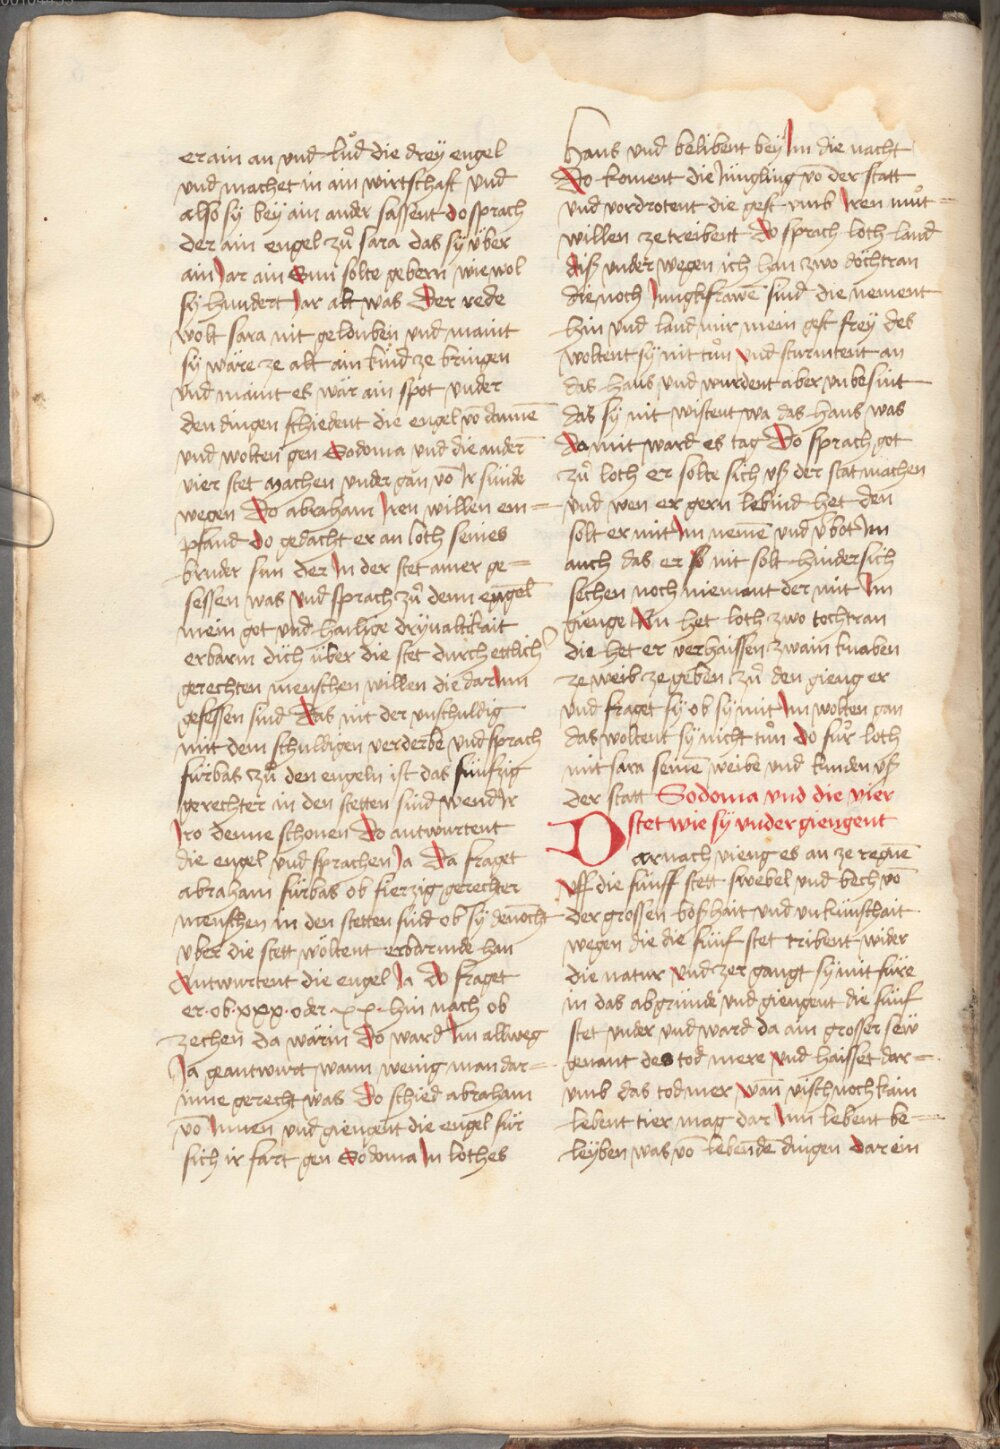 er ain an vnd lůd die dreÿ engel
vnd machet in ain wirtschaft vnd
also sÿ beÿ ain ander sassent do sprach
der ain engel zů sara das sÿ über
ain Jar ain Sun solte gebern wie wol
sÿ hundert Jar alt was Der rede
wolt sara nit gelouben vnd maint
sÿ wäre ze alt ain kind ze bringen
vnd maint es wär ain spot vnder
den dingen schiedent die engel vō dannē
vnd wolten gen Sodoma vnd die andern
vier stet machen vnder gān vō Jr sünde
wegen Do abraham Jren willen em=
pfand do gedacht er an loth seines
bruder sun der In der stet ainer ge=
sessen was vnd sprach zů denn engel
mein got vnd hailige drÿualtikait
erbarm dich über die stet durch ettlich
gerechten menschen willen die dar Inn
gesessen sind Das nit der vnschuldig
mit dem schuldigen verderbe vnd sprach
fürbas zů den engeln ist das fünfzig
gerechter in den stetten sind wend Ir
Iro denne schonen Do antwurtent
die engel vnd sprachen Ja Da fraget
abraham fürbas ob fierzig gerechter
menschen in den stetten sind ob sÿ dēnocht
über die stett wöltent erbarmde han
Antwurtent die engel Ja Do fraget
er · ob · xxx · oder · xx · hin nach ob
zechen da wärin Do ward Im allweg
Ja geantwurt wann wenig man dar=
inne gerecht was Do schied abraham
vō Innen vnd giengent die engel für
sich ir fart gen Sodoma In lothes
Haus vnd belibent beÿ Im die nacht
Do koment die Jüngling vō der statt
vnd vordrotent die gest vmb Iren můt=
willen ze treibent Do sprach loth land
diß vnder wegen ich han zwo dochtran
die noch Jungkfrawē sind die nement
hin vnd land mir mein gest freÿ des
woltent sÿ nit tůn vnd sturmtent an
das haus vnd wurdent aber vnbesint
das sÿ nit wistent wa das haus was
Do mit ward es tag Do sprach got
zů loth er solte sich vß der stat machen
vnd wen er gern lebind het den
solt er mit Im nemē vnd v̄bot Im
auch das er so nit solt hinder sich
sechen noch niemant der mit Im
gienge Nu het loth zwo tochtran
die het er verhaissen zwain knaben
ze weib ze geben zů den gieng er
vnd fraget sÿ ob sÿ mit Im wolten gan
das woltent sÿ nicht tůn do fůr loth
mit sara seinē weibe vnd kinden vß
der statt Sodoma vnd die vier
stet wie sÿ vnder giengent
Darnach vieng es an ze regnē
vff die fünff stett swebel vnd bech vō
der grossen boßhait vnd vnkünschait
wegen die die fünf stet tribent wider
die natur vnd zer gangt sÿ mit füre
in das abgründe vnd giengent die fünf
stet vnder vnd ward da ain grosser sew
genant des tod mere vnd haisset dar=
vmb das todmer wan visch noch kain
lebent tier mag dar Inn lebent be=
leÿben was vō lebēdē dingen dar ein